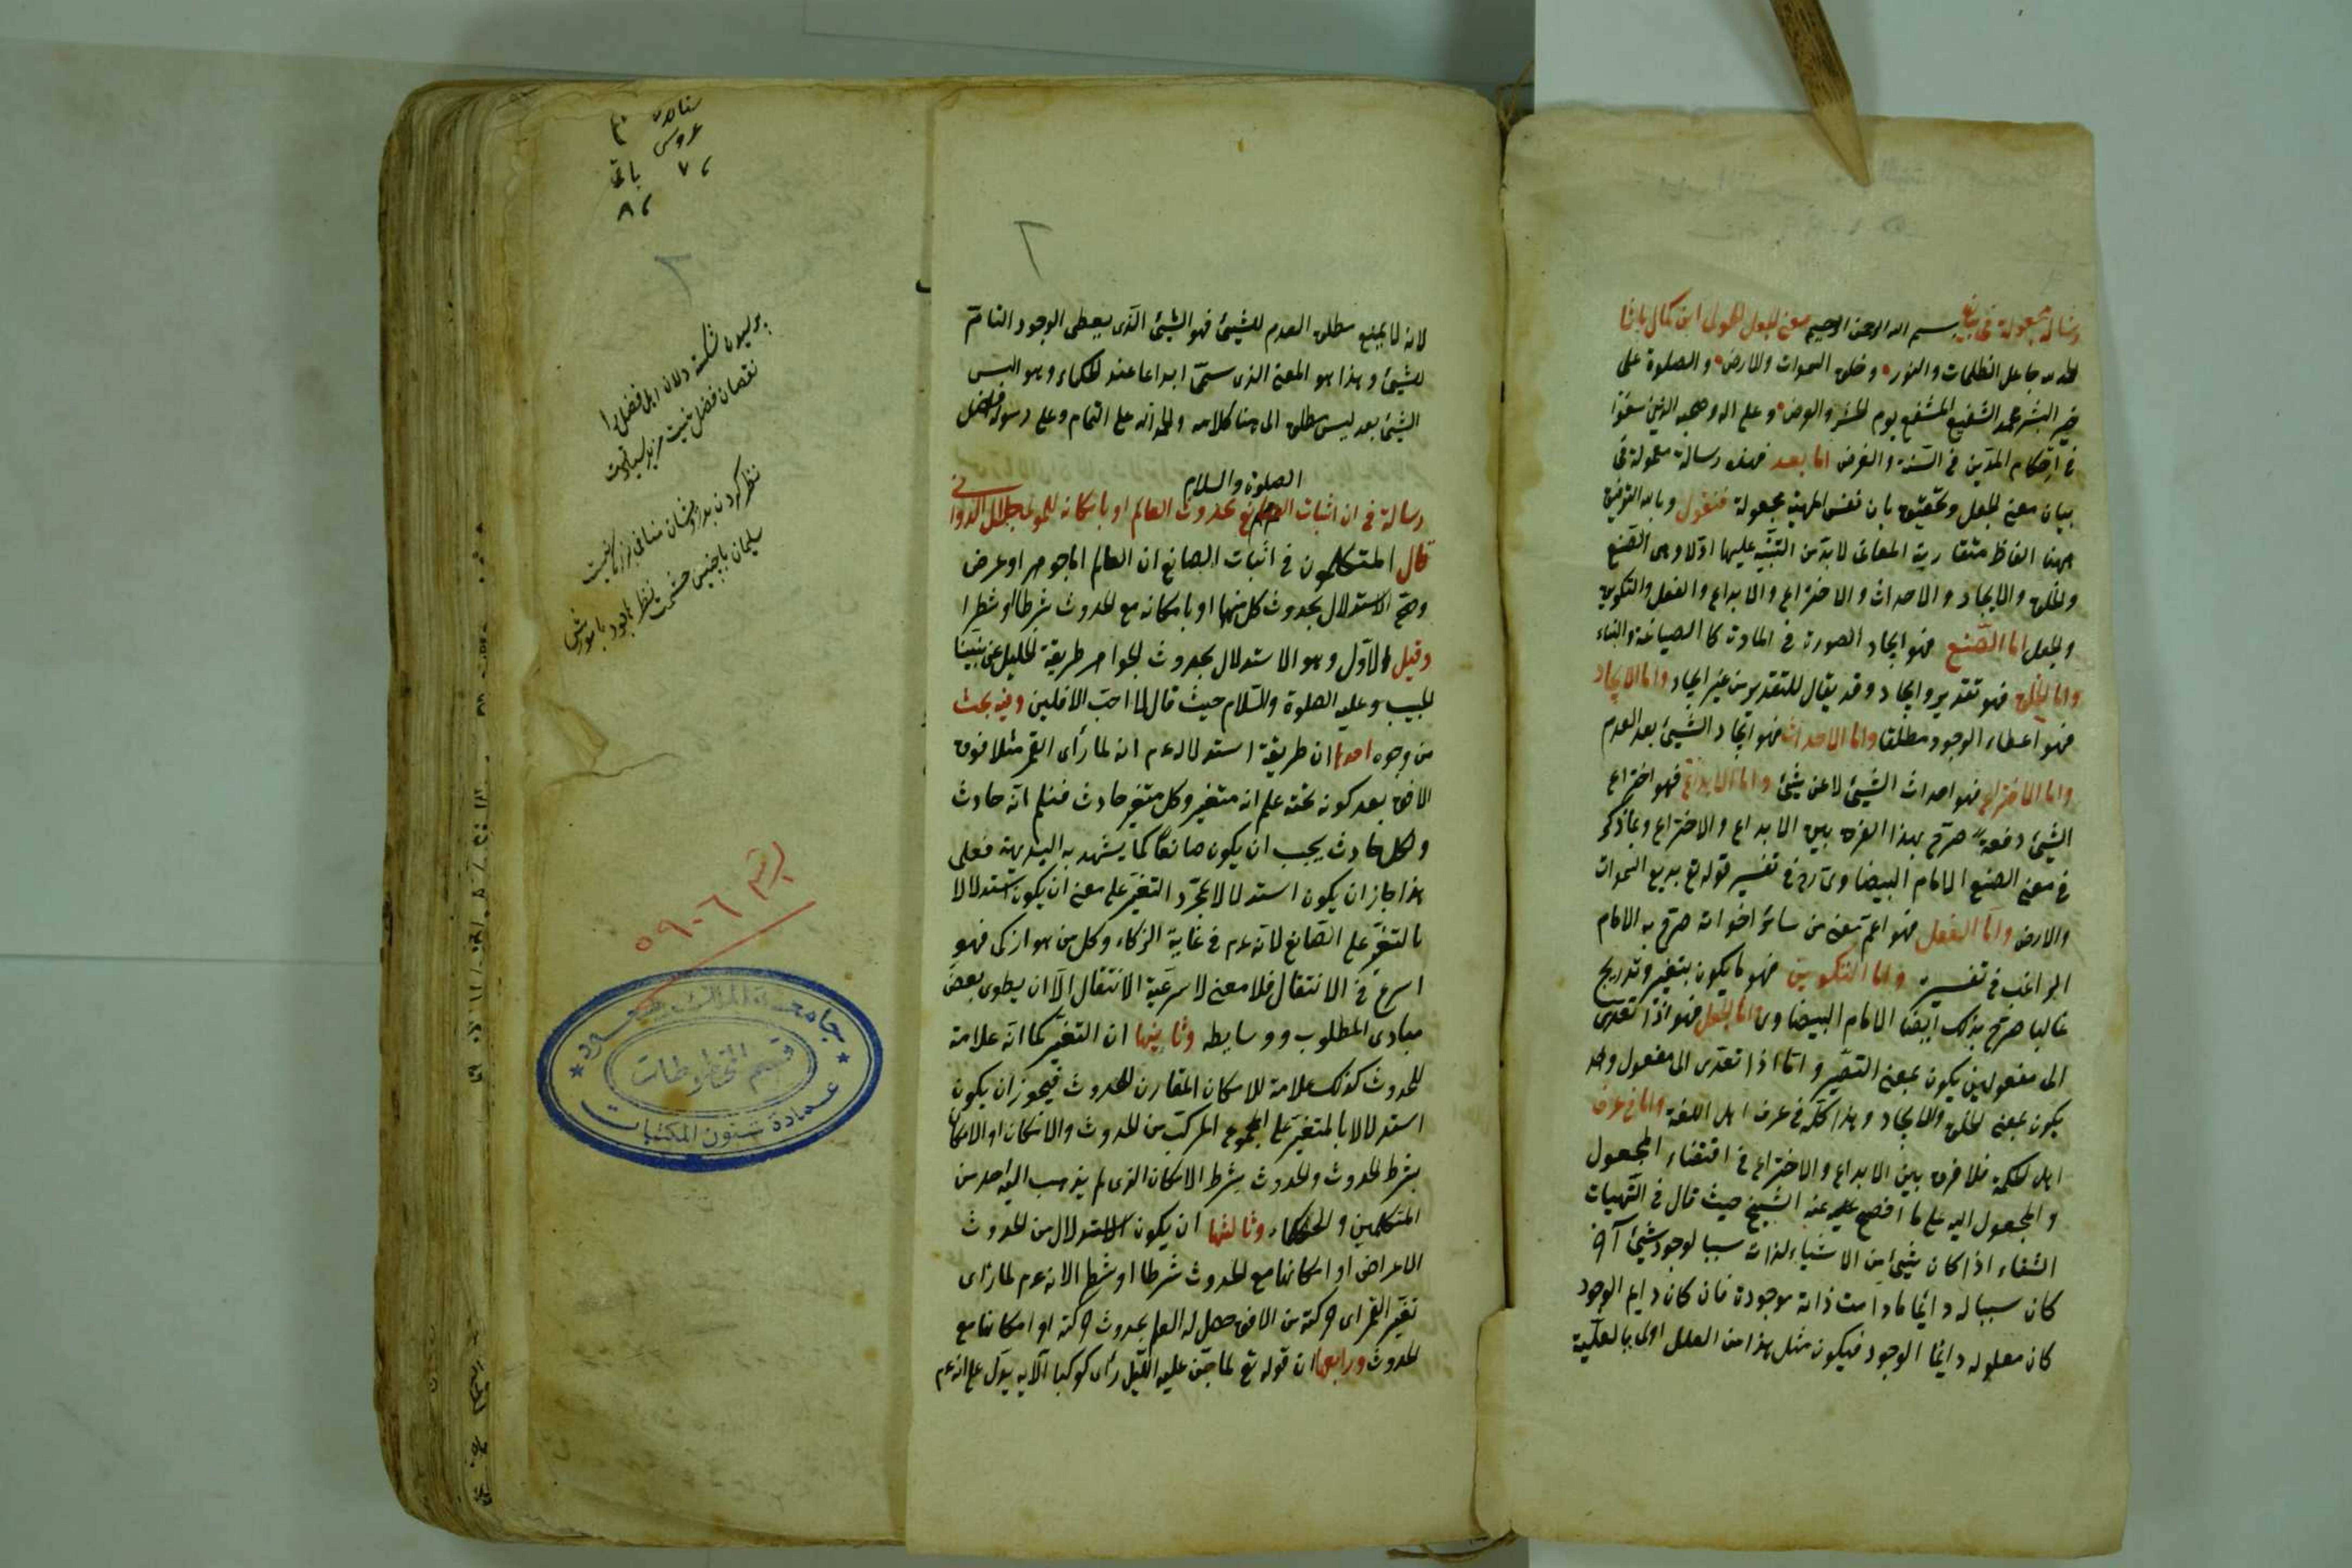 رسالة مجعولة في بيان بسم الله الرحمن الرحيم معنى الجعل لمولى ابن كمال باشا
الحمد لله جاعل الظلمات والنور وخلق السموات والارض والصلوة على
خير البشر محمد الشفيع المشفع يوم الحشر والعرض وعلى اله وصحبه الذين سعوا
في احكام الدين في السنة والفرض اما بعد فهذه رسالة معمولة في
بيان معنى الجعل وتحقيق بان نفس الماهية مجعولة فنقول وبالله التوفيق
ههنا الفاظ متقاربة المعانى لا بد من التنبيه عليها اولا وهى الصنع
والخلق والايجاد والاحداث والاختراع والابداع والفعل والتكوين
والجعل اما الصنع فهو ايجاد الصورة في المادة كالصياغة والبناء
واما الخلق فهو تقدير وايجاد وقد يقال للتقدير من غير ايجاد واما الايجاد
فهو اعطاء الوجود مطلقا واما الاحداث فهو ايجاد الشيئ بعد العدم
واما الاختراع فهو احداث الشيئ لا عن شيئ واما الابداع فهو اختراع
الشيئ دفعة صرح بهذا الفرق بين الابداع والاختراع وبما ذكر
في معنى الصنع الامام البيضاوى في تفسير قوله تع بديع السموات
والارض واما الفعل فهو اعم معنى من سائر اخواته صرح به الامام
الراغب في تفسيره واما التكوين فهو ما يكون بتغير وتدريج
غالبا صرح بذلك ايضا الامام البيضاوى واما الجعل فهو اذا تعدى
الى مفعولين يكون بمعنى التصيير واما اذا تعدى الى مفعول واحد
يكون بمعنى الخلق والايجاد وهذا كله في عرف اهل اللغة واما في عرف
اهل الحكمة فلا فرق بين الابداع والاختراع في اقتضاء المجعول
والمجعول اليه على ما افصح عنه الشيخ حيث قال في الهيات
الشفاء اذا كان شيئ من الاشياء لذاته سببا لوجود شيئ آخر
كان سببا له دائما ما دامت ذاته موجودة فان كان دايم الوجود
كان معلوله دائما الوجود فيكون مثل هذا من العلل اولى بالعلية
٢
لانه لما يمنع مطلق العدم للشيئ فهو الشيئ الذى يعطى الوجود التام
للشيئ وهذا هو المعنى الذى سمى ابداعا عند الحكماء وهو اليس
الشيئ بعد ليس مطلق الى هنا كلامه والحمد لله على التمام وعلى رسوله افضل
الصلوة والسلام
رسالة في ان اثبات الصانع بحدوث العالم او بامكانه للمولى جلال الدوانى
قال المتكلمون في اثبات الصانع ان العالم اما جوهر او عرض
وصح الاستدلال بحدوث كل منهما او بامكانه مع الحدوث شرطا او شطرا
وقيل الاول وهو الاستدلال بحدوث الجواهر طريقة الخليل عن نبينا
الحبيب وعليه الصلوة والسلام حيث قال لا احب الافلين وفيه بحث
من وجوه احدها ان طريقة استدلاله عم انه لما رأى القمر مثلا فوق
الافق بعد كونه تحته علم انه متغير وكل متغير حادث فعلم انه حادث
وكل حادث يجب ان يكون صانعا كما يشهد به البديهة فعلى
هذا جاز ان يكون استدلالا بمجرد التغير على معنى ان يكون استدلالا
بالتغير على الصانع لانه عم في غاية الذكاء وكل من هو ازكى فهو
اسرع في الانتقال فلا معنى لاسرعية الانتقال الا ان يطوى بعض
مبادى المطلوب ووسايطه وثانيها ان التغير كما انه علامة
للحدوث كذلك علامة للامكان المقارن للحدوث فيجوز ان يكون
استدلالا بالمتغير على المجموع المركب من الحدوث والامكان او الامكان
بشرط الحدوث والحدوث بشرط الامكان الذى لم يذهب اليه احد من
المتكلمين والحكماء وثالثها ان يكون الاستدلال من الحدوث
الاعراض او امكانها مع الحدوث شرطا او شطرا لانه عم لما رأى
تغير القمر اى حركته من الافق حصل له العلم بحدوث حركته او امكانها مع
الحدوث ورابعها ان قوله تع لما جن عليه الليل رأى كوكبا الايه يدل على انه عم
باقى
نظر كردن بدرويشان منافى بزركى نيست
سليمان با چنين حشمت نظر ها بود با مورش
الرقم ٥٩٠٦
جامعة الملك سعود
قسم المخطوطات
عمادة شئون المكتبات